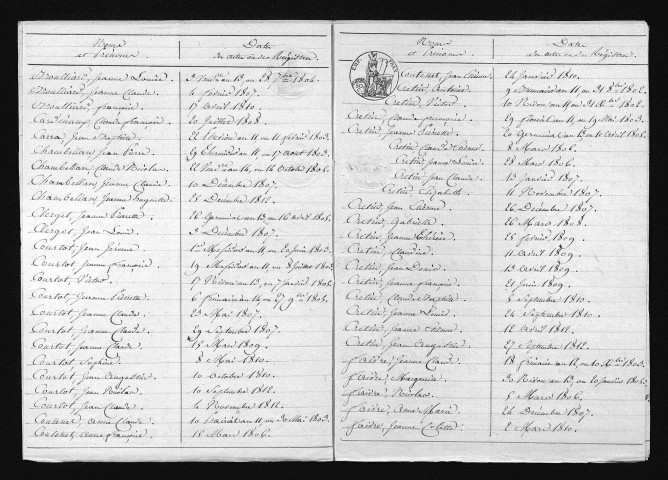 Noms
et Prénoms
Dates
des actes ou des Registres
Brouilliard, Jeanne Louise.
Brouilliard, Jeanne Claude. 4 février 1807.
Brouilliard, françoise. 17 avril 1810.
Cardinaux, Claude françois. 20 Juillet 1808.
Carra, Jean Baptiste. 11 février 1803.
Chambellan, Jean Pierre. 29 thermidor an 11 ou 17 aout 1803.
Chambellan, Claude Nicolas. 22 Vend.re an 14 ou 14 Octobre 1806.
Chambellan, Jeanne Claude. 10 Décembre 1807.
Chambellan, Jeanne Huguette. 25 Décembre 1812.
Clerget, Jeanne Pierrette. 26 Germinal an 13, ou 16 avril 1805.
Clerget, Jean Louis. 3 Décembre 1807.
Courtot, Jean Jérome. 1er Messidor an 11 ou 20 Juin 1803.
Courtot, Jeanne françoise. 19 Messidor an 11 ou 8 Juillet 1803.
Courtot, Victor. 17 Nivose an 13 ou 7 janvier 1805.
Courtot, Jeanne Pierrette. 6 frimaire an 14 ou 27 9bre 1805.
Courtot, Jeanne Claude. 23 Mai 1807.
Courtot, Jeanne Claude. 29 Septembre 1807.
Courtot, Jeanne Claude. 15 Mars 1809.
Courtot, Sophie. 8 Mai 1810.
Courtot, Jean Augustin. 10 Octobre 1810.
Courtot, Jean Nicolas. 10 Septembre 1812.
Courtot, Jean Claude. 4 Novembre 1812.
Coutenet, Anne Claude. 10 Prairial an 11 ou 30 Mai 1803.
Coutenet, Anne françoise. 15 Mars 1806.
Noms
et Prénoms
Dates
des actes ou des Registres
Coutenet, Jean Etienne. 24 Janvier 1810.
Cretin, Antoine. 9 brumaire an 11 ou 31 8bre 1802.
Cretin, Victor.
Cretin, Claude françois. 29 floréal an 11 ou 19 Mai 1803.
Cretin, Jeanne Pierrette. 20 Germinal an 13 ou 10 avril 1805.
Cretin, Claude Etienne. 8 Mars 1806.
Cretin, Jeanne Louise. 28 Mars 1806.
Cretin, Jean Claude. 13 Janvier 1807.
Cretin, Elizabeth. 11 Novembre 1807.
Cretin, Jean Etienne. 26 Décembre 1807.
Cretin, Gabrielle. 26 Mars 1808.
Cretin, Jeanne Thérèse. 25 février 1809.
Cretin, Claudine. 11 avril 1809.
Cretin, Jean Denis. 13 avril 1809.
Cretin, Jeanne françoise. 21 Juin 1809.
Cretin, Claude Baptiste. 5 Septembre 1810.
Cretin, Jeanne Louise. 24 Septembre 1810.
Cretin, Jeanne Etienne. 12 avril 1812.
Cretin, Jean Augustin. 27 Septembre 1812.
faivre, Jeanne Claude. 18 frimaire an 12 ou 10 Xbre 1803.
faivre, Marguerite. 30 Nivose an 13, ou 20 Janvier 1805.
faivre, Nicolas. 5 Mars 1806.
faivre, Anne Marie. 24 Décembre 1807.
faivre, Jeanne Colette. 2 Mars 1810.